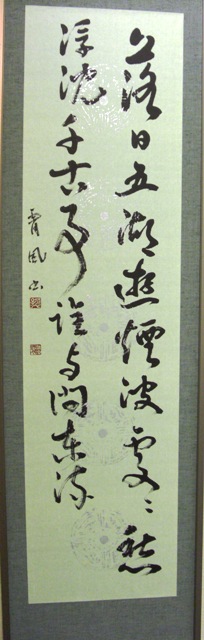 落日五湖遊煙波處〻愁
浮沈千古事誰与問東流